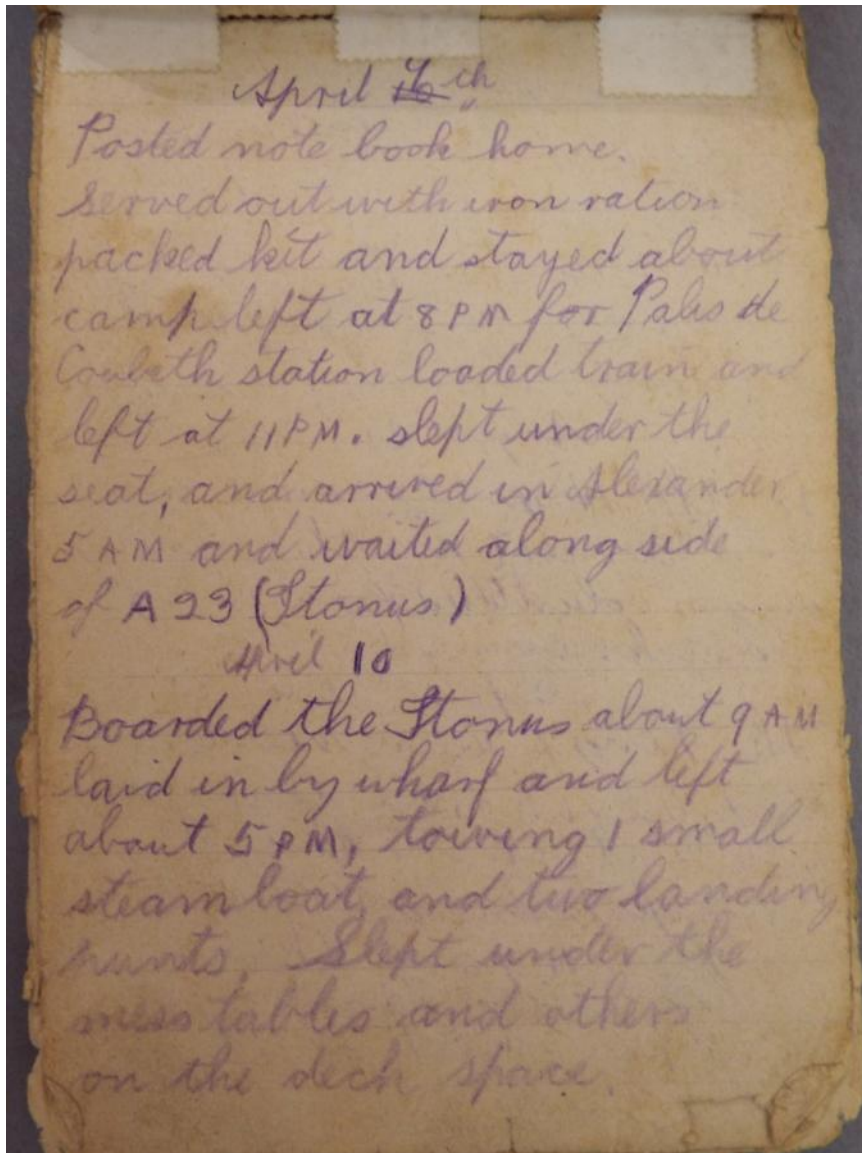 April 9th
Posted note book home.
Served out with iron ration
packed kit and stayed about
camp left at 8 PM for Palis de
Coubeth station loaded train and
left at 11 PM. slept under the
seat, and arrived in Alexander
5 AM and waited along side
of A 23 (Stonus)
April 10
Boarded the Stonus about 9 AM
laid in by wharf and left
about 5 PM, towing 1 small
steam boat, and two landing
punts. Slept under the
mess tables and others
on the deck space.